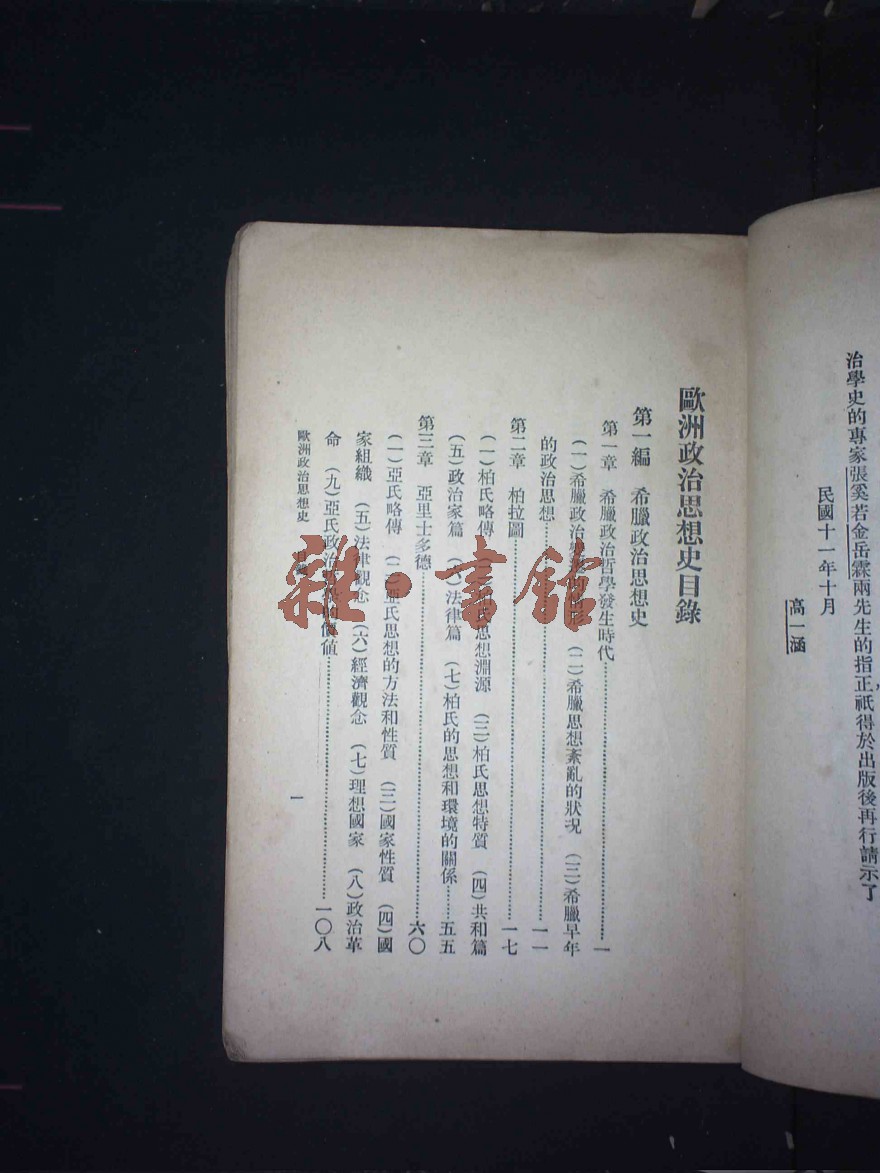 治學史的專家張奚若金岳霖兩先生的指正，祇得於出版後再行請示了
民國十一年十月
高一涵
歐洲政治思想史目錄
第一編　希臘政治思想史
第一章　希臘政治哲學發生時代……一
（一）希臘政治（二）希臘思想紊亂的狀況（三）希臘早年
的政治思想……一一
第二章　柏拉圖……一七
（一）柏氏略傳（二）柏氏思想淵源（三）柏氏思想特質（四）共和篇
（五）政治家篇（六）法律篇（七）柏氏的思想和環境的關係……五五
第三章　亞里士多德……六〇
（一）亞氏略傳（二）亞氏思想的方法和性質（三）國家性質（四）國
家組織（五）法律觀念（六）經濟觀念（七）理想國家（八）政治革
命（九）亞氏政治的價值……一〇八
歐洲政治思想史　目錄
一
雜·書館